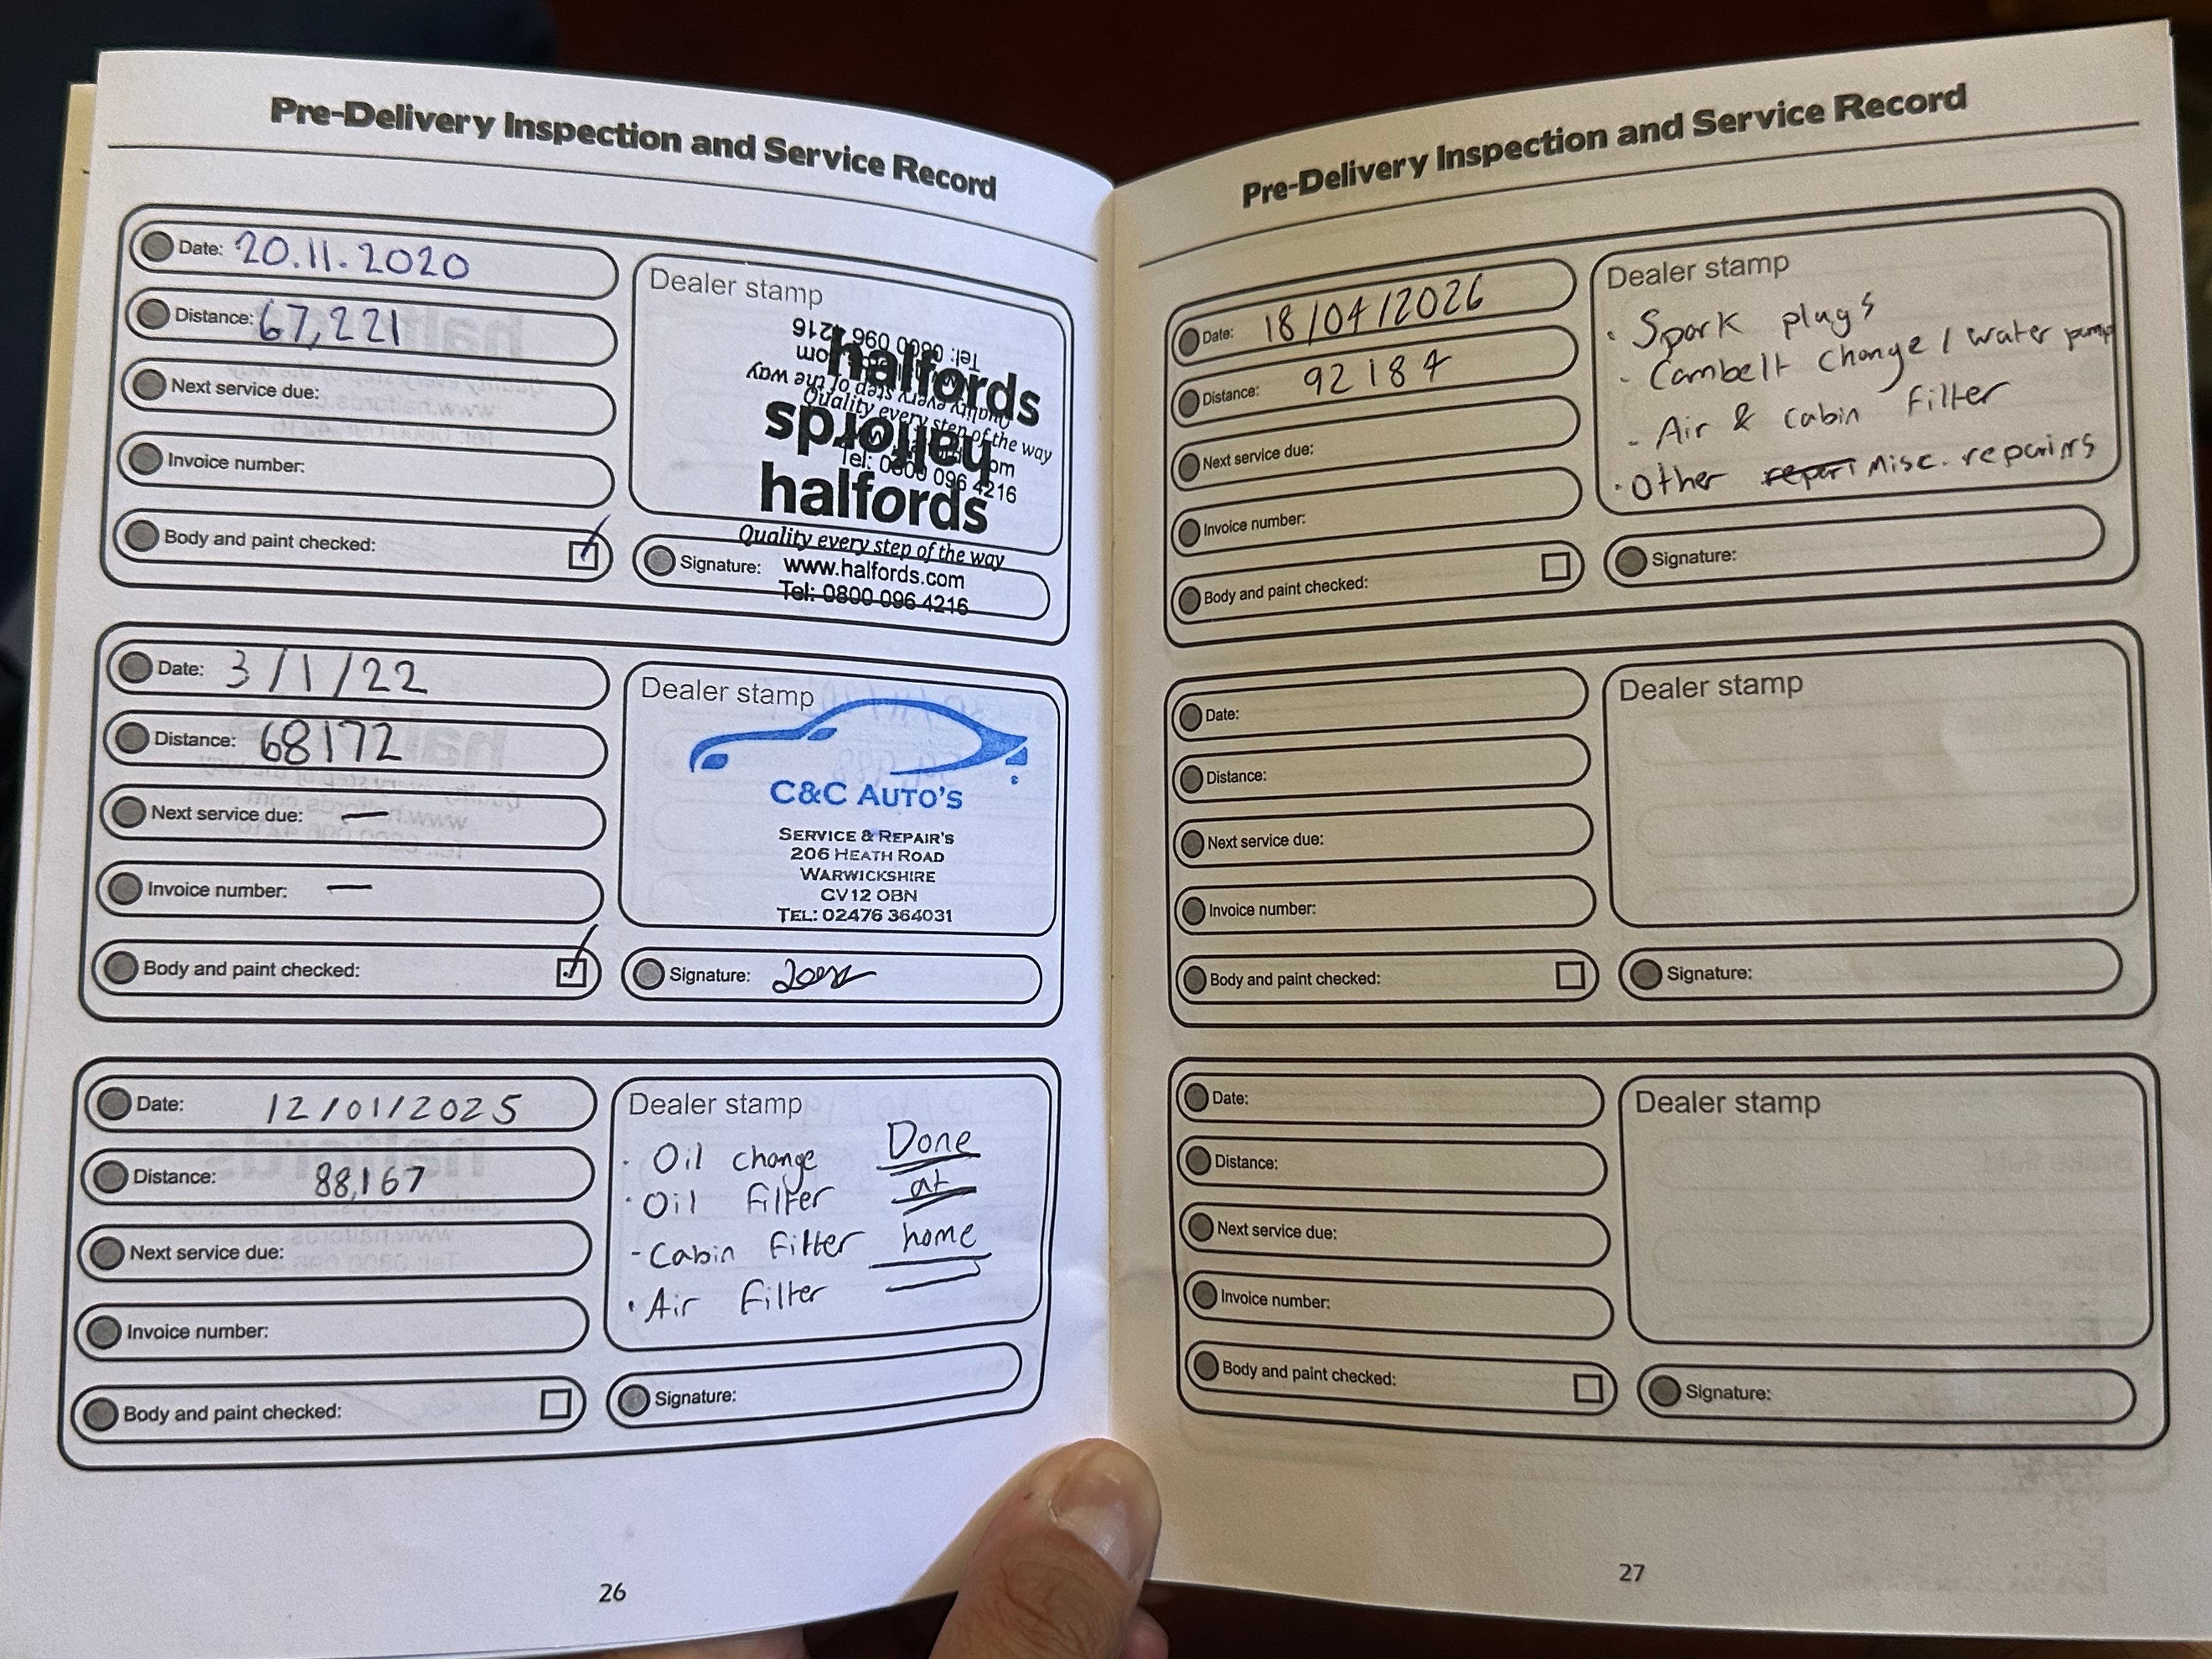 Pre-Delivery Inspection and Service Record
Date: 20.11.2020
Distance: 67,221
Next service due:
Invoice number:
Body and paint checked:
Dealer stamp
halfords
Quality every step of the way
Tel: 0800 096 4216
halfords
Quality every step of the way
Tel: 0800 096 4216
halfords
Quality every step of the way
Signature: www.halfords.com
Tel: 0800 096 4216
Date: 3/1/22
Distance: 68172
Next service due: —
Invoice number: —
Body and paint checked:
Dealer stamp
C&C AUTO'S
SERVICE & REPAIR'S
206 HEATH ROAD
WARWICKSHIRE
CV12 OBN
TEL: 02476 364031
Signature:
Date: 12/01/2025
Distance: 88,167
Next service due:
Invoice number:
Body and paint checked:
Dealer stamp
· Oil change Done
· Oil filter at
- Cabin filter home
· Air filter
Signature:
26
Pre-Delivery Inspection and Service Record
Date: 18/04/2026
Distance: 92184
Next service due:
Invoice number:
Body and paint checked:
Dealer stamp
· Spark plugs
- Cambelt change / water pump
- Air & cabin filter
· Other misc. repairs
Signature:
Date:
Distance:
Next service due:
Invoice number:
Body and paint checked:
Dealer stamp
Signature:
Date:
Distance:
Next service due:
Invoice number:
Body and paint checked:
Dealer stamp
Signature:
27